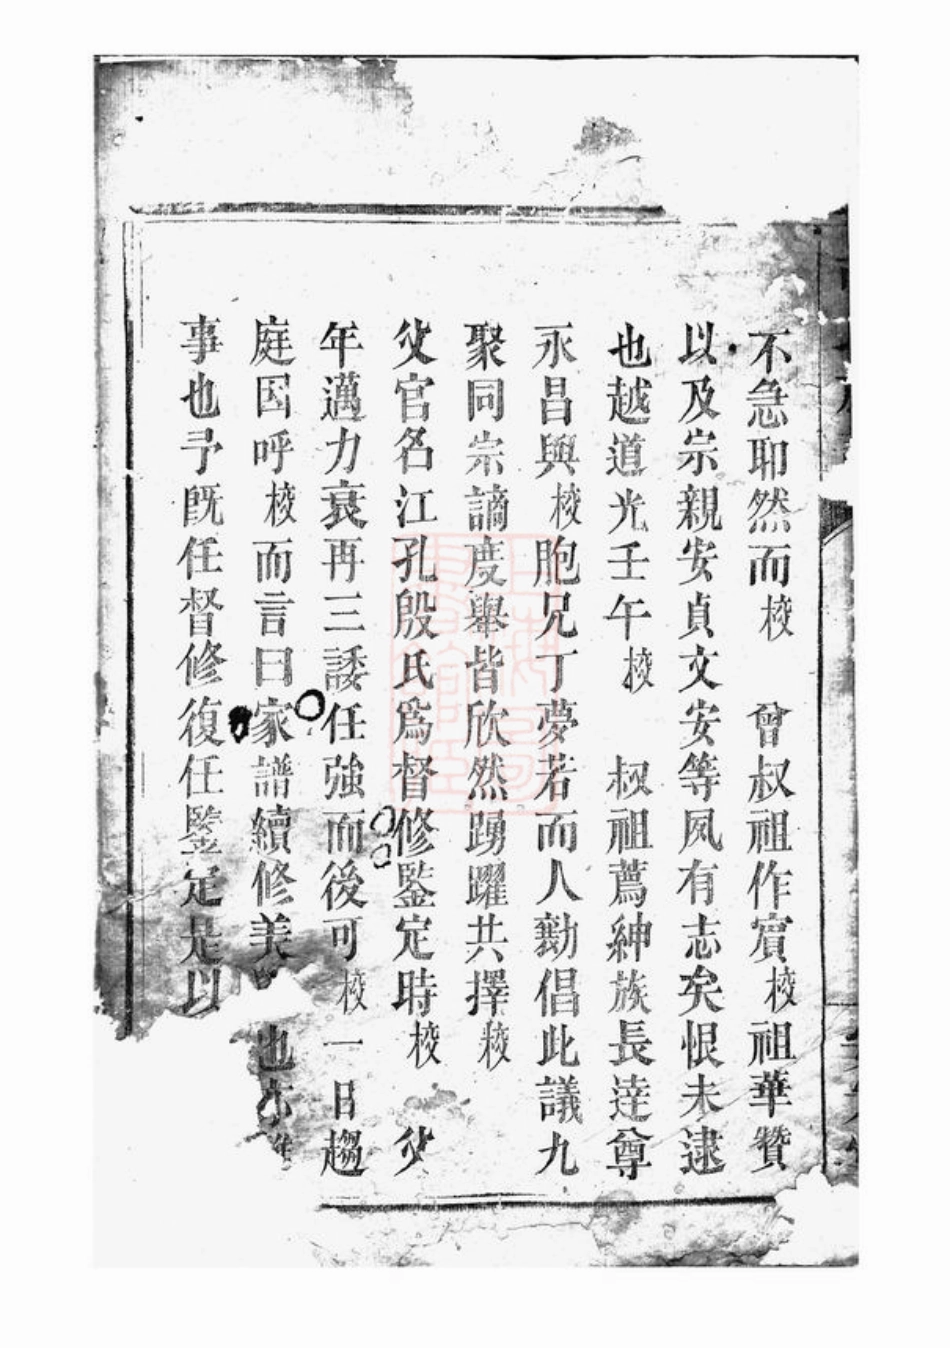 不急耶然而校　曾叔祖作賓校祖華贊
以及宗親安貞文安等夙有志矣恨未逮
也越道光壬午校　叔祖薦紳族長達尊
永昌與校胞兄丁夢若而人勷倡此議九
聚同宗謫度舉皆欣然踴躍共擇校
父官名江孔殷氏爲督修鑒定時校　父
年邁力衰再三諉任強而後可校一日趨
庭因呼校而言曰家譜續修美也亦
事也予既任督修復任鑒定是以